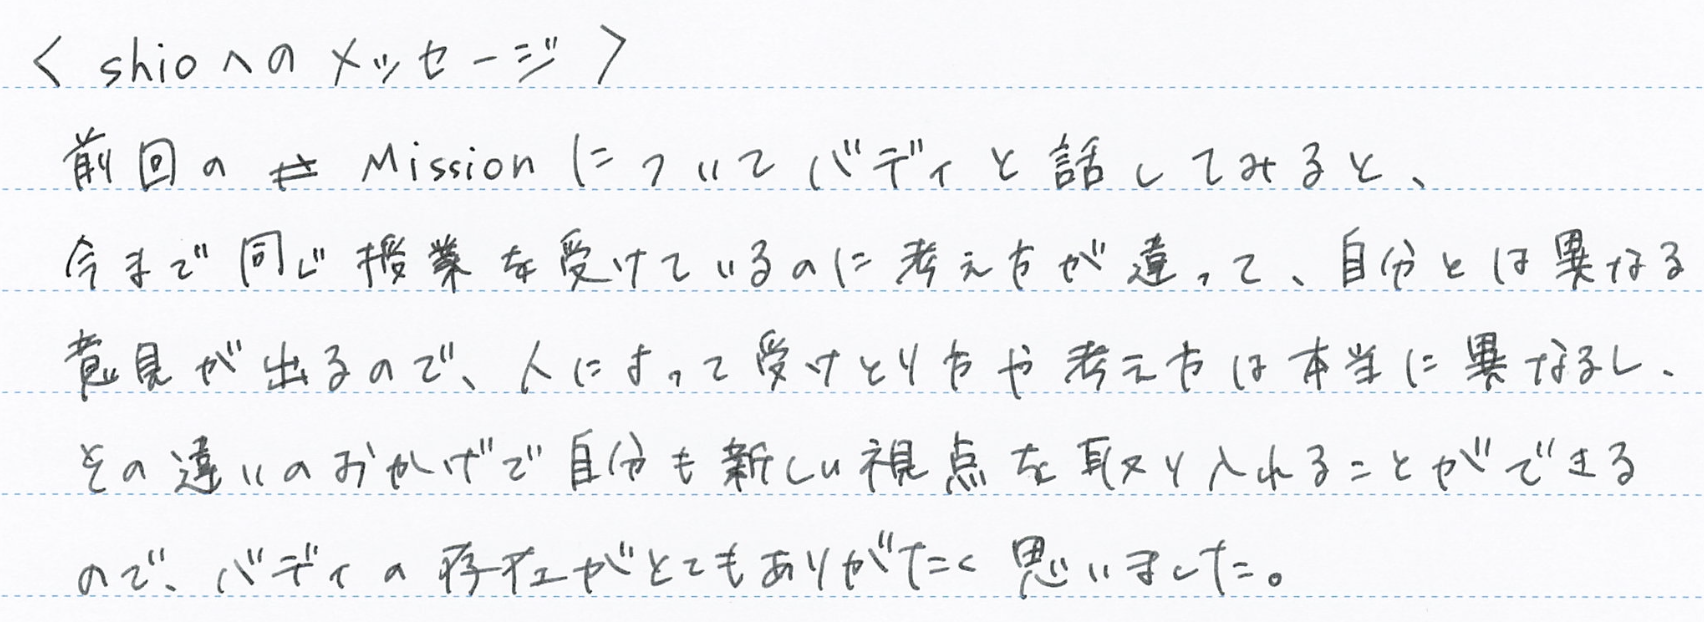 < shioへのメッセージ >
前回の Mission についてバディと話してみると、
今まで同じ授業を受けているのに考え方が違って、自分とは異なる
意見が出るので、人によって受けとり方や考え方は本当に異なるし、
その違いのおかげで自分も新しい視点を取り入れることができる
ので、バディの存在がとてもありがたく思いました。